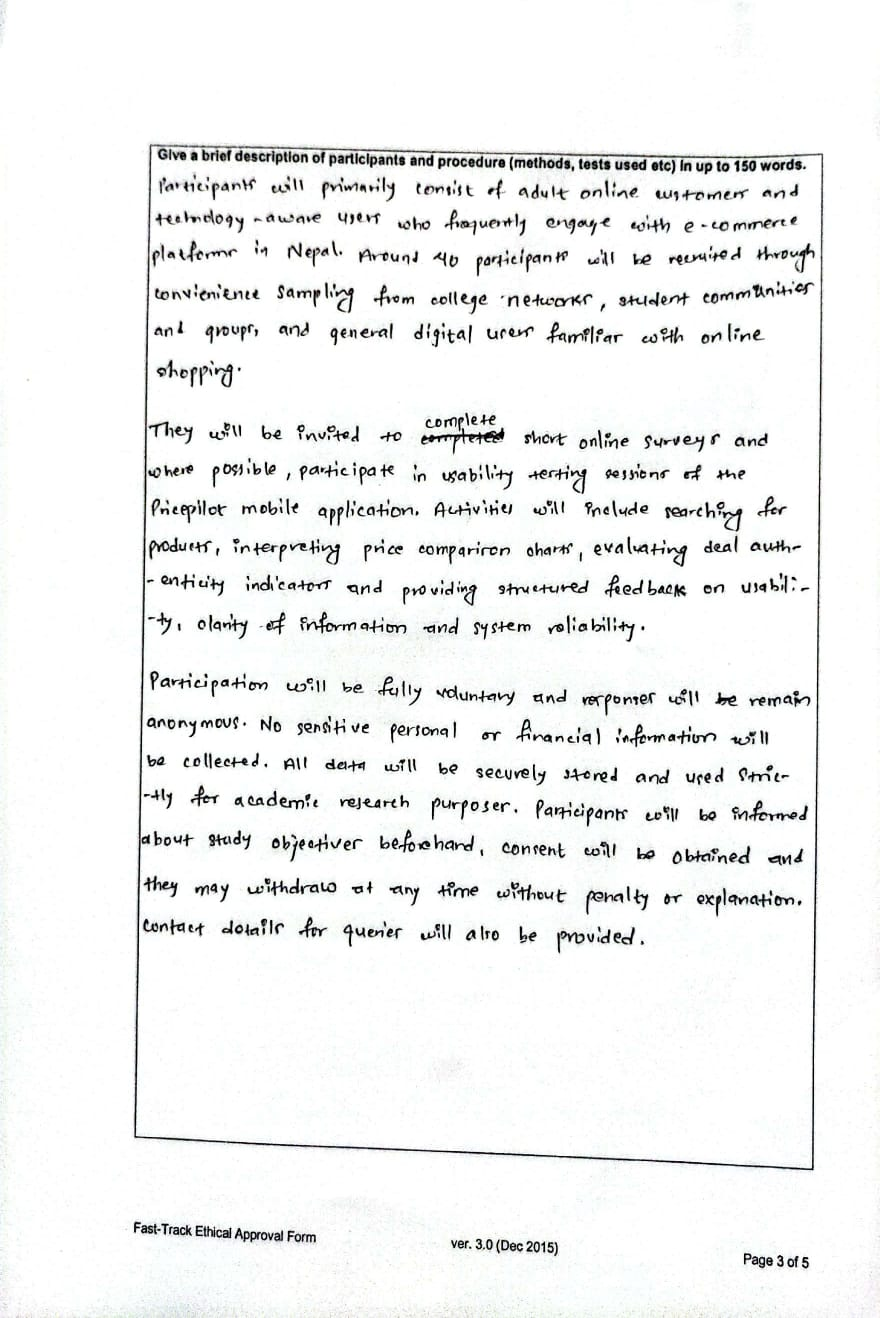 Give a brief description of participants and procedure (methods, tests used etc) in up to 150 words.
Participants will primarily consist of adult online customers and
technology-aware users who frequently engage with e-commerce
platforms in Nepal. Around 40 participants will be recruited through
convienience sampling from college networks, student communities
and groups, and general digital users familiar with online
shopping.
complete
They will be invited to completed short online surveys and
where possible, participate in usability testing sessions of the
Pricepilot mobile application. Activities will include searching for
products, interpreting price comparison charts, evaluating deal auth-
-enticity indicators and providing structured feedback on usabili-
-ty, clarity of information and system reliability.
Participation will be fully voluntary and responses will be remain
anonymous. No sensitive personal or financial information will
be collected. All data will be securely stored and used stric-
-tly for academic research purposes. Participants will be informed
about study objectives beforehand, consent will be obtained and
they may withdraw at any time without penalty or explanation.
Contact details for queries will also be provided.
Fast-Track Ethical Approval Form
ver. 3.0 (Dec 2015)
Page 3 of 5